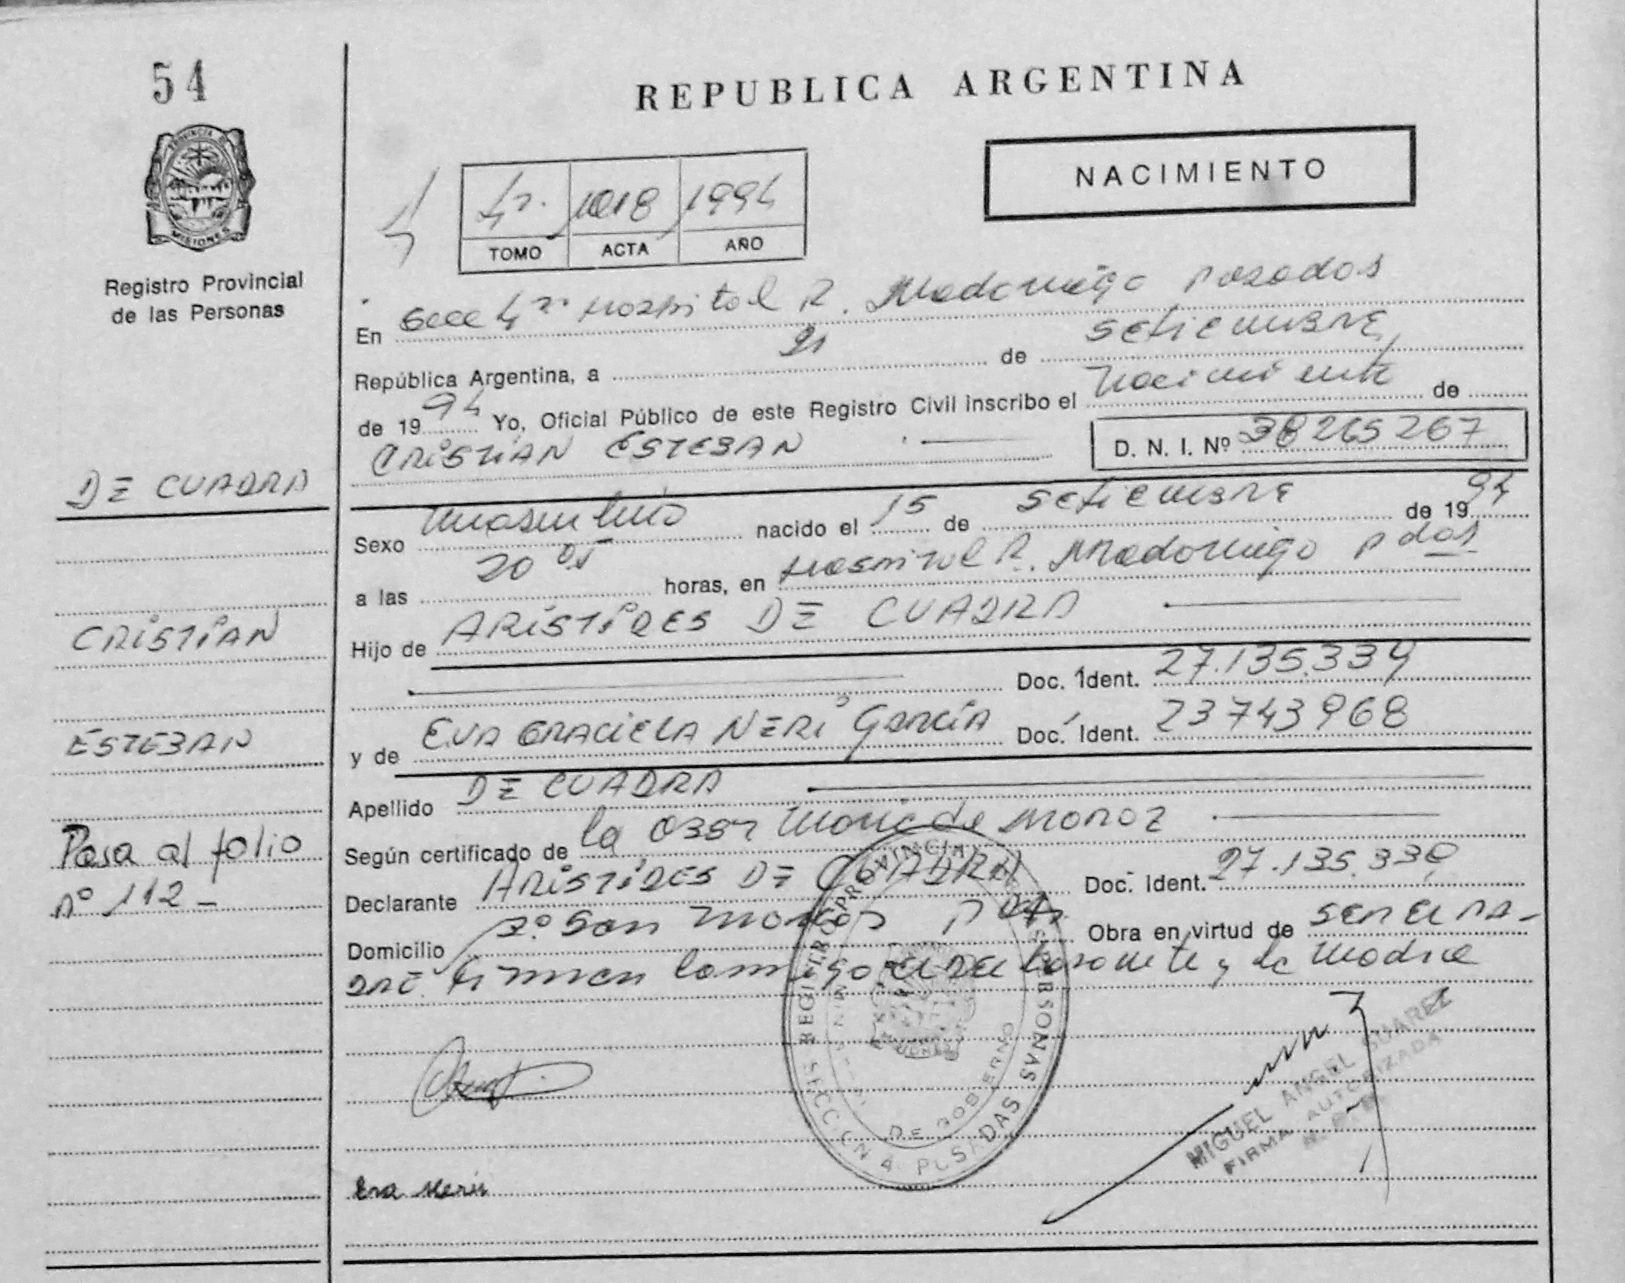 54
REPUBLICA ARGENTINA
NACIMIENTO
PROVINCIA DE
MISIONES
Registro Provincial
de las Personas
4ª. 1018 1994
TOMO ACTA AÑO
En Secc 4ª Hospital R. Madariaga Posadas
República Argentina, a 21 de setiembre
de 1994 Yo, Oficial Público de este Registro Civil inscribo el Nacimiento de
CRISTIAN ESTEBAN D. N. I. Nº 38265267
DE CUADRA
Sexo masculino nacido el 15 de setiembre de 1994
a las 20 05 horas, en Hospital R. Madariaga Pdas
CRISTIAN
Hijo de ARISTIDES DE CUADRA
Doc. Ident. 27.135.334
ESTEBAN
y de EVA GRACIELA NERI García Doc. Ident. 23743968
Apellido DE CUADRA
Pasa al folio
Nº 112-
Según certificado de la Obst Maria de Moroz
Declarante ARISTIDES DE CUADRA Doc. Ident. 27.135.33
Domicilio Bº San Marcos Pdas Obra en virtud de ser el pa-
dre. Firman conmigo el declarante y la madre
REGISTRO PROVINCIAL DE LAS PERSONAS
DE GOBIERNO
SECCION 4 POSADAS
MIGUEL ANGEL SUAREZ
FIRMA AUTORIZADA
Eva Neri